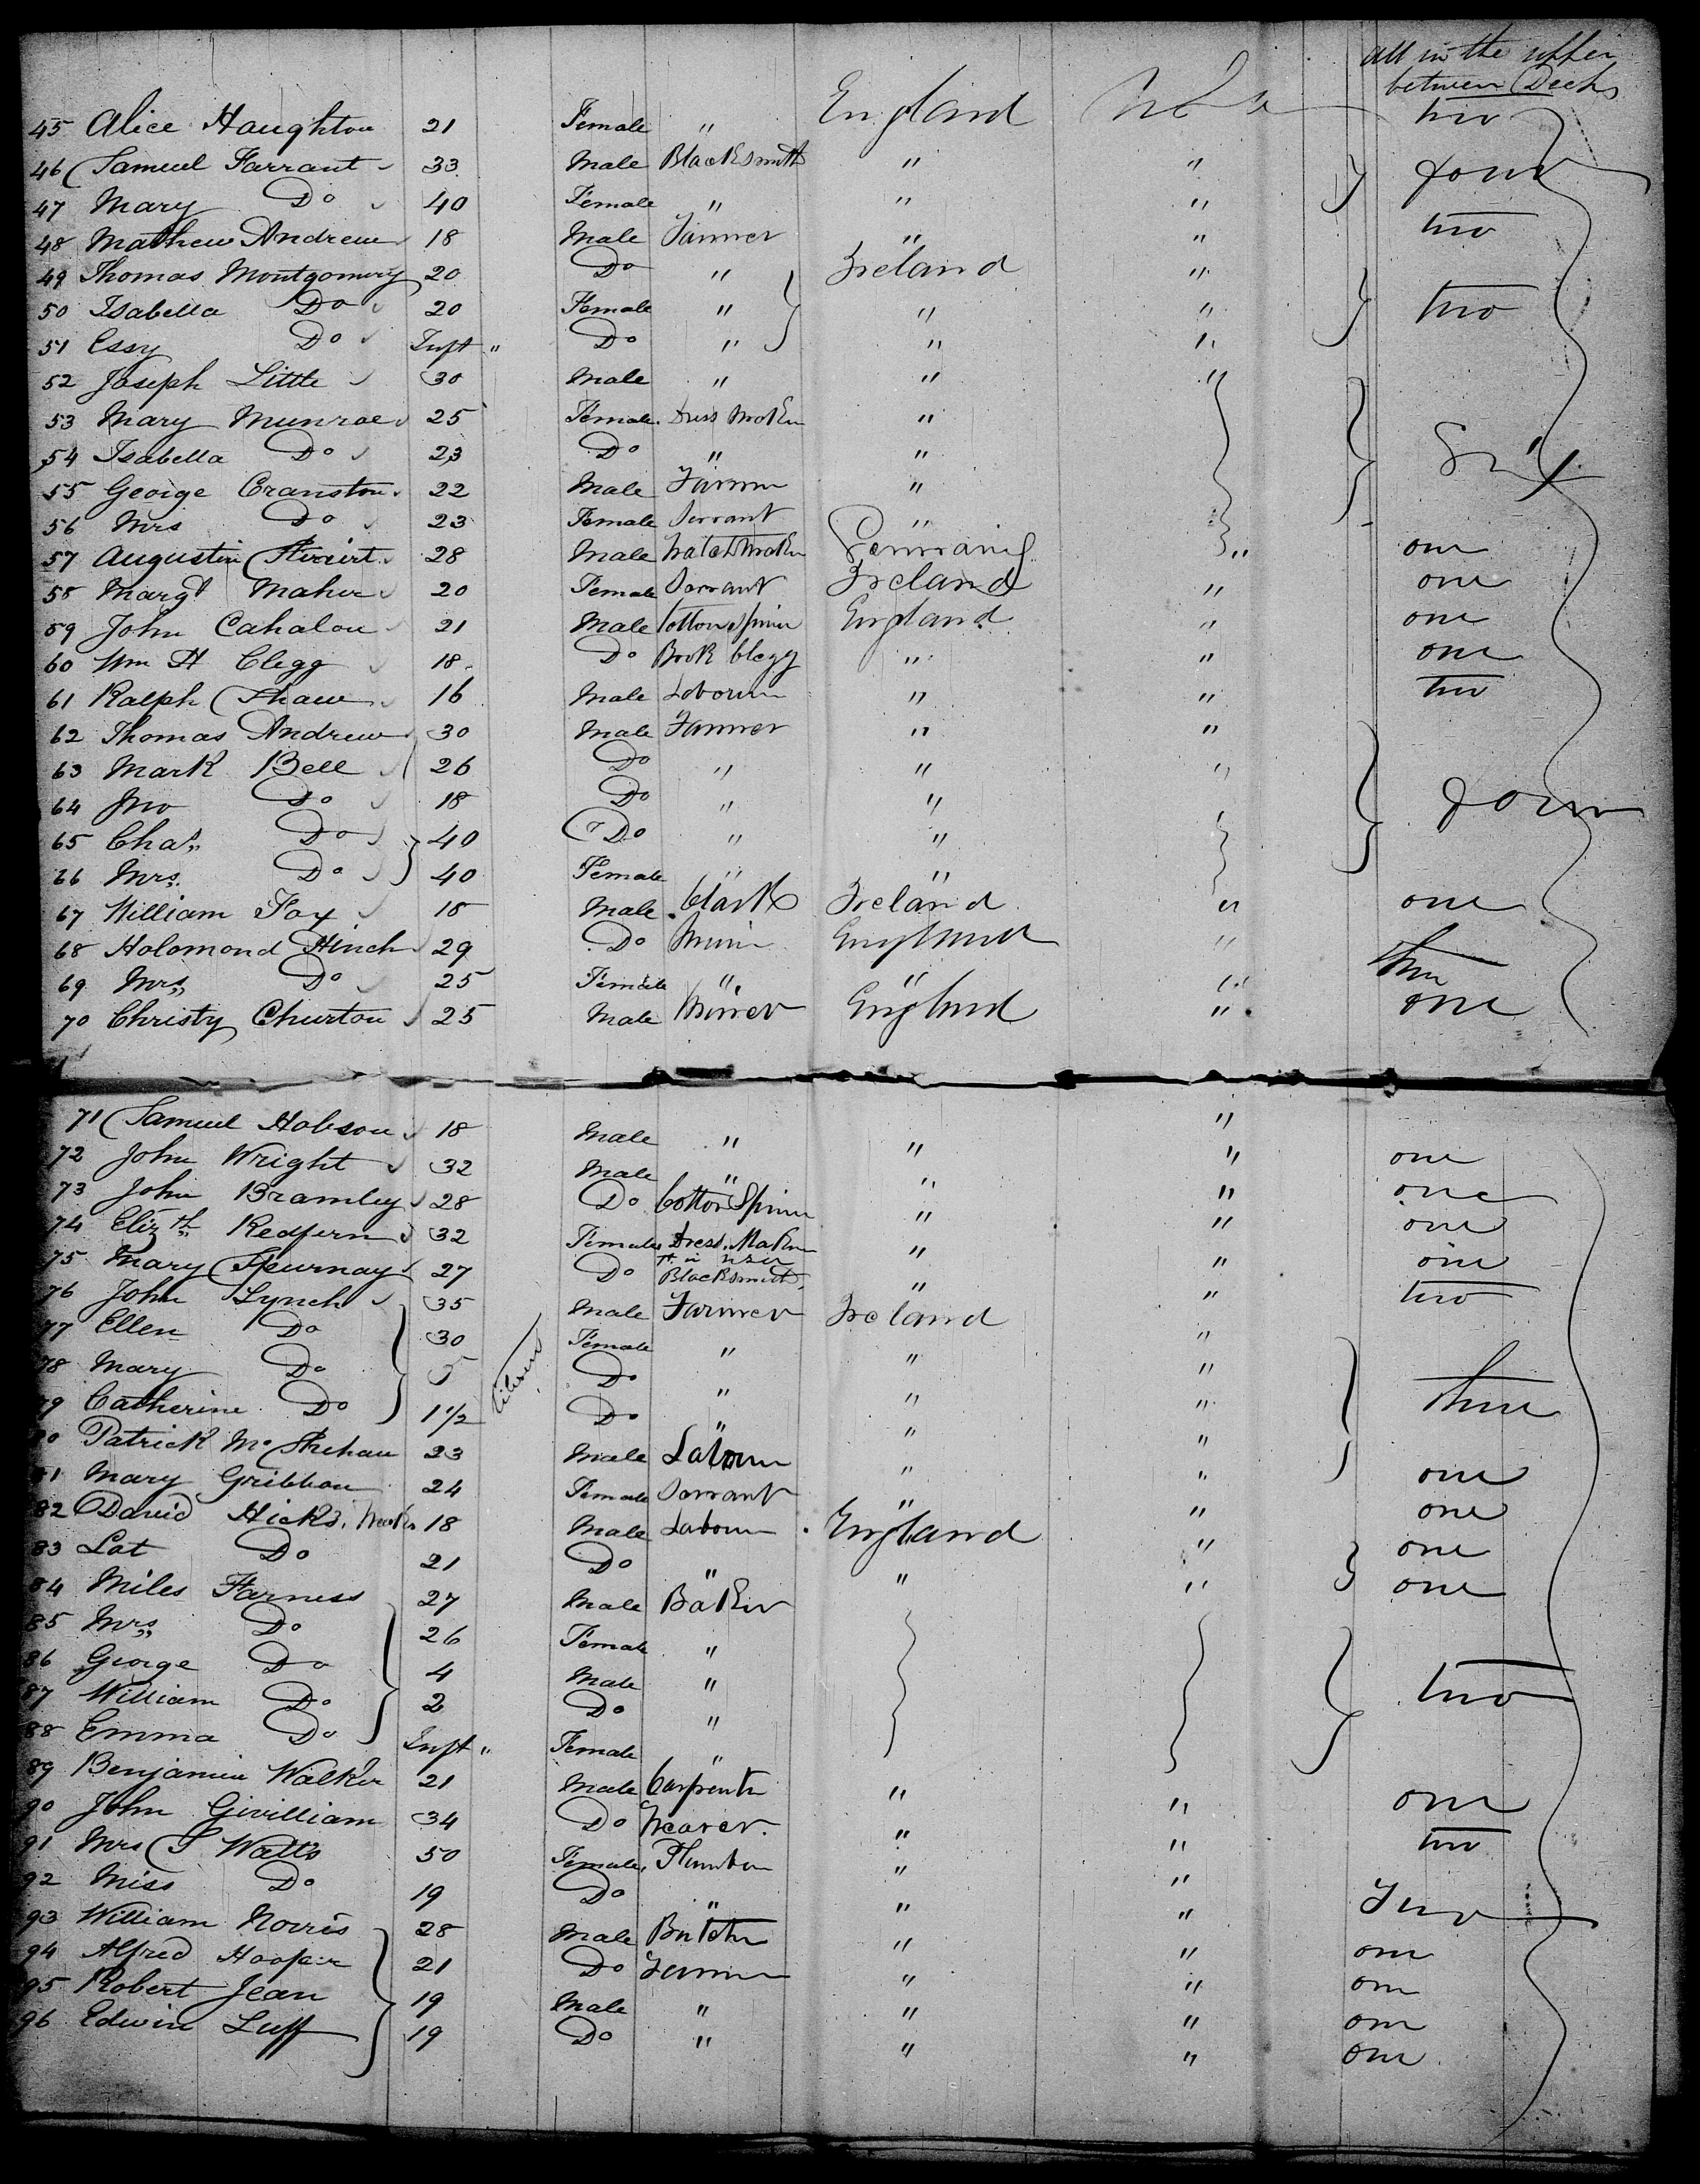 all in the upper
between Decks
45 Alice Haughton 21 Female " England U S a two
46 Samuel Farrant 33 Male Blacksmith " " four
47 Mary Do 40 Female " " "
48 Mathew Andrew 18 Male Farmer " " two
49 Thomas Montgomery 20 Do " Ireland "
50 Isabella Do 20 Female " " " two
51 Essy Do Inft " Do " " "
52 Joseph Little 30 Male " " "
53 Mary Munroe 25 Female Dress Maker "
54 Isabella Do 23 Do " " Six
55 George Cranston 22 Male Farmer "
56 Mrs Do 23 Female Servant "
57 Augustin 28 Male Watchmaker Germany " one
58 Margt Maher 20 Female Servant Ireland " one
59 John Cahalon 21 Male Cotton Spinner England " one
60 Wm H Clegg 18 Do Book " " one
61 Ralph Shaw 16 Male Labourer " " two
62 Thomas Andrew 30 Male Farmer " "
63 Mark Bell 26 Do " " "
64 Jno Do 18 Do " " four
65 Chas Do 40 Do " "
66 Mrs Do 40 Female " "
67 William Fox 18 Male Clark Ireland " one
68 Holomond Hinch 29 Do Miner England "
69 Mrs Do 25 Female " " " three
70 Christy Churton 25 Male Miner England " one
71 Samuel Hobson 18 Male " " "
72 John Wright 32 Male " " " one
73 John Bramley 28 Do Cotton Spinner " " one
74 Elizth Redfern 32 Female Dress Maker " " one
75 Mary Spurnay 27 Do Blacksmith " " one
76 John Lynch 35 Male Farmer Ireland " two
77 Ellen Do 30 Female " " "
78 Mary Do 5 Do " " "
79 Catherine Do 1 1/2 Do " " " three
80 Patrick Mc Shehan 23 Male Labourer " "
81 Mary Gribbon 24 Female Servant " " one
82 David Hicks 18 Male Labourer England " one
83 Lot Do 21 Do " " " one
84 Miles Harness 27 Male Baker " one
85 Mrs Do 26 Female "
86 George Do 4 Male "
87 William Do 2 Do " two
88 Emma Do Inft " Female "
89 Benjamin Walker 21 Male Carpenter " " one
90 John Givilliam 34 Do Weaver " " two
91 Mrs S Watts 50 Female Plumber " "
92 Miss Do 19 Do " " " Two
93 William Norris 28 Male Butcher " " one
94 Alfred Hooper 21 Do Farmer " " one
95 Robert Jean 19 Male " " " one
96 Edwin Luff 19 Do " " " one